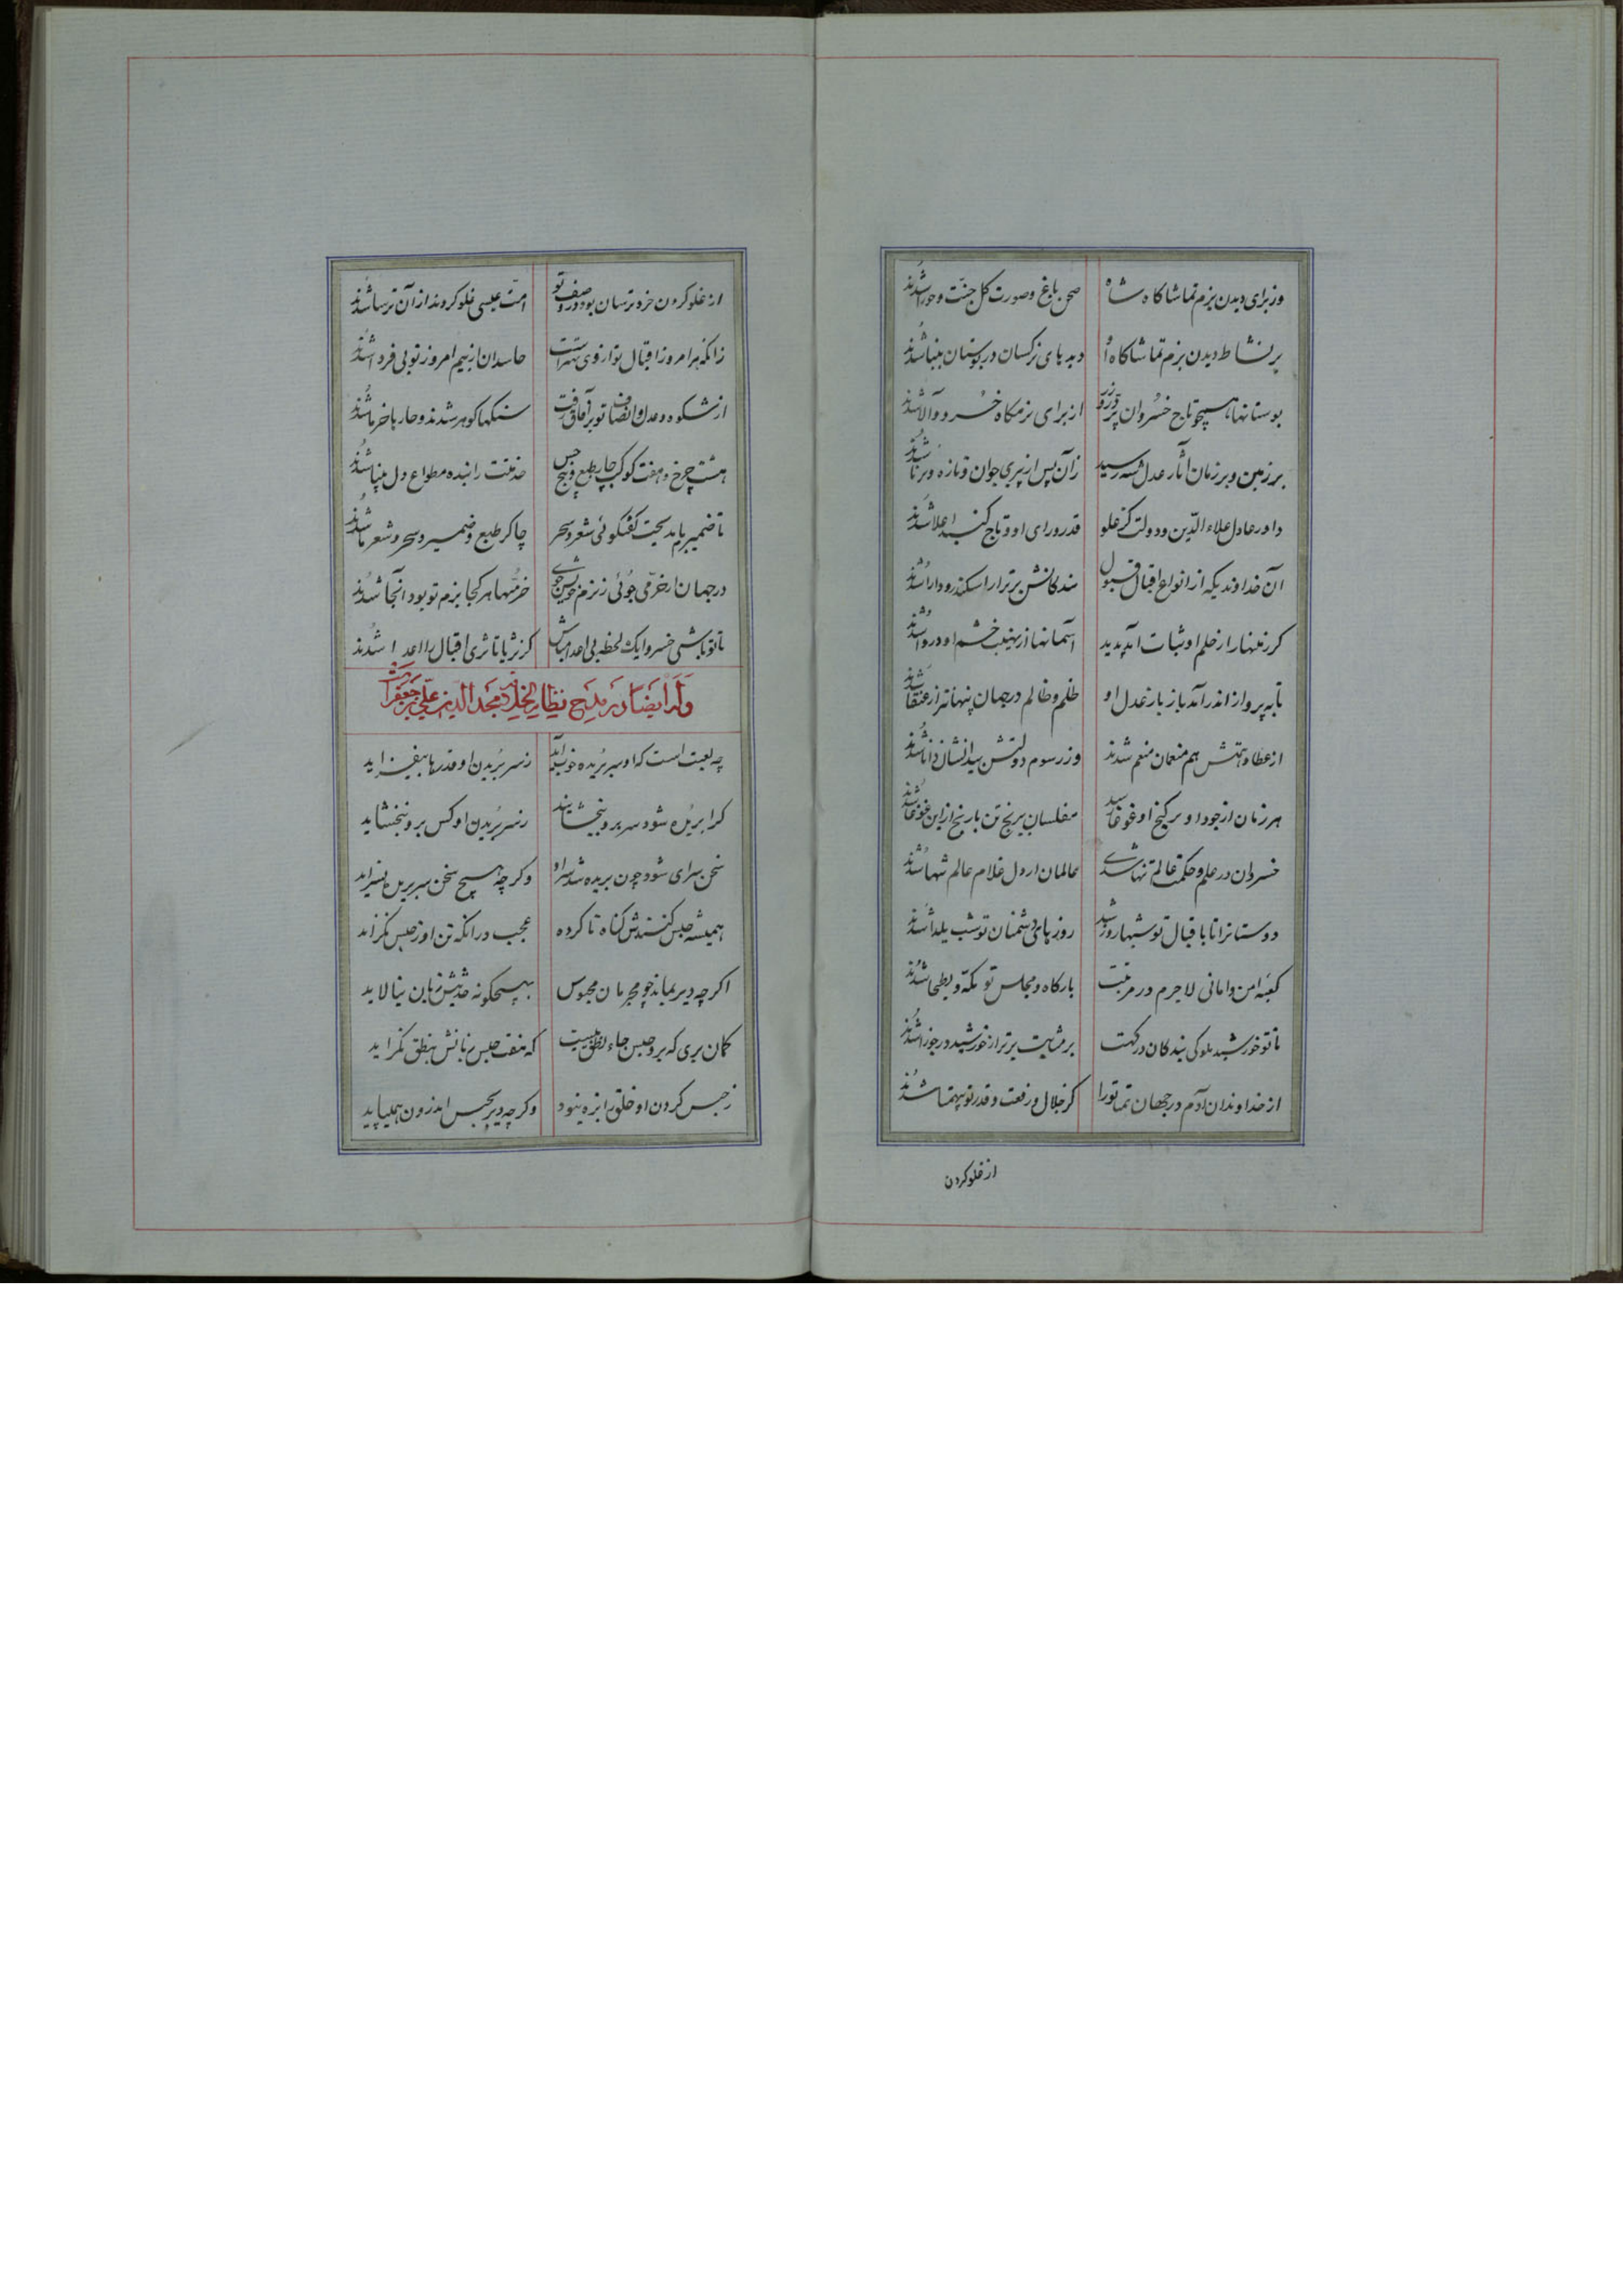 وز برای دیدن بزم تماشاگاه شاه صحن باغ و صورت گل جنت و حورا شدند
بر نشاط دیدن بزم تماشاگاه او دیدهای نرگسان در بوستان بینا شدند
بوستانها همچو تاج خسروان پر در و زر از برای بزمگاه خسرو والا شدند
بر زمین و بر زمان آثار عدل شه رسید زان پس از پیری جوان و تازه و برنا شدند
داور عادل علاء الدین و دولت کز علو قدر و رای او و تاج گنبد اعلا شدند
آن خداوندیکه از انواع اقبال و قبول بندگانش برتر از اسکندر و دارا شدند
کز زمینها را ز حلم او ثبات آمد پدید آسمانها از نهیب خشم او دروا شدند
تا به پرواز اندر آمد باز باز عدل او ظلم و ظالم در جهان پنهانتر از عنقا شدند
از عطاء همتش هم منعمان منعم شدند وز رسوم دولتش بیدانشان دانا شدند
هر زمان از جود او بر گنج او غوغا رسید مفلسان بیرنج تن با رنج از این غوغا شدند
خسروان در علم و حکمت عالم تنها شدی عالمان از دل غلام عالم تنها شدند
دوستانرا تا باقبال تو شبها روز شد روزهای دشمنان تو شب یلدا شدند
کعبه امن و امانی لاجرم در مرتبت بارگاه و مجلس تو مکه و بطحا شدند
تا تو خورشید ملوکی بندگان درگهت بر مثابت برتر از خورشید در جوزا شدند
از خداوندان آدم در جهان همتا تورا کز جلال و رفعت و قدر تو بیهمتا شدند
از غلو کردن
از غلو کردن خرد ترسان بود در وصف تو امت عیسی غلو کردند از آن ترسا شدند
زانکه هر امروز اقبال تو از وی بهتر است حاسدان از بیم امروز تو بی فردا شدند
از شکوه و عدل و انصاف تو بر آفاق رفت سنگها گوهر شدند و خارها خرما شدند
هشت چرخ و هفت کوکب چار طبع و پنج حس خدمتت را بنده مطواع دل بینا شدند
تا ضمیر یابد سخت گفتگوئی شعر و سحر چاکر طبع و ضمیر و سحر و شعر ما شدند
در جهان ار خرمی جوئی ز بزم خویش جوی خرمیها هر کجا بزم تو بود آنجا شدند
تا تو باشی خسروا یک لحظه بی اعدا مباش کز ثریا تا ثری اقبال را اعدا شدند
وله ایضا در مدیح نظام الخلافه مجد الدین علی بن جعفر
چه لعبت است که او سر بریده خوب آید ز سر بریدن او قدرها بیفزاید
کرا بریده شود سر برو ببخشایند ز سر بریدن او کس برو نبخشاید
سخن سرای شود چون بریده شد سر او وگر چه هیچ سخن سر بریده نسراید
همیشه حبس کنندش گناه ناکرده عجب در آنکه تن او ز حبس نگزاید
اگر چه دیر بماند چو مجرمان محبوس بهیچگونه حدیثش زبان نیالاید
گمان بری که برو حبس جاء نطق نیست که منفت حبس زبانش بنطق نگراید
ز حبس کردن او خلق را بزه نبود وگر چه دیر بحبس اندرون همیپاید